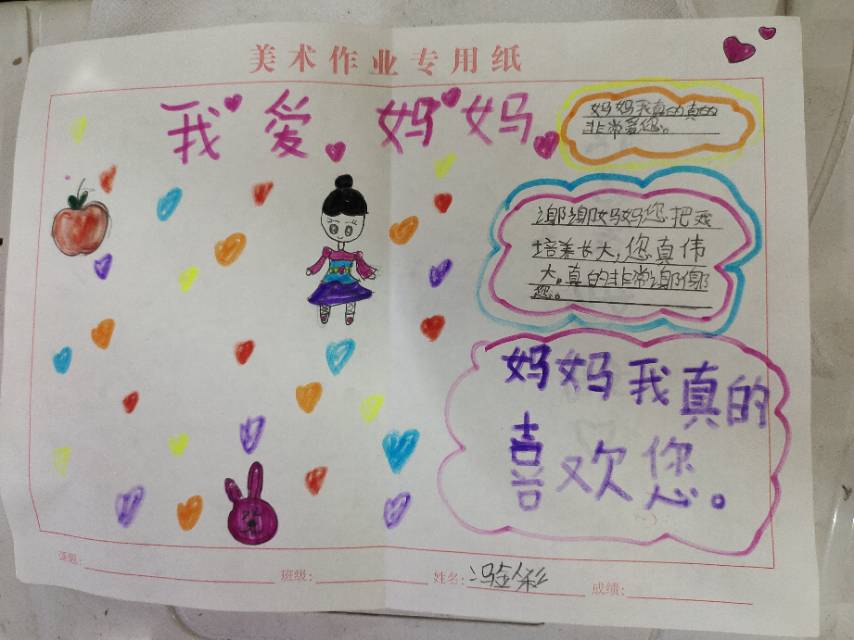 美术作业专用纸
我爱妈妈
妈妈我真的真的
非常爱您。
谢谢妈妈您把我
培养长大,您真伟
大。真的非常谢谢
您。
妈妈我真的
喜欢您。
课题:
班级: 姓名:冯金彩 成绩: